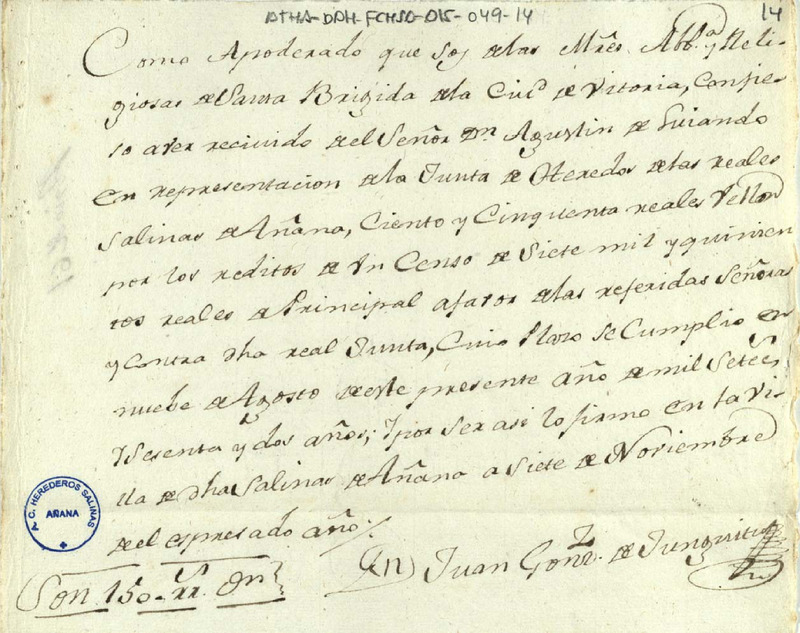 ATHA-DAH-FCHSA-015-049-14
14
Como Apoderado que soy de las Mr̃es Abb.ª y Reli-
giosas de Santa Brigida de la Ciu.d de Vitoria, Confie-
so aver recivido del Señor Dn. Agustin de Guiando
en representacion de la Junta de Heredos de las reales
Salinas de Añana, Ciento y Cinquenta reales Vellon
por los reditos de Vn Censo de Siete mil y quinien
tos reales de Principal afavor de las referidas Señoras
y contra dha real Junta, Cuio Plazo se Cumplio en
nuebe de Agosto de este presente año de mil Setecs
Ysesenta y dos años; Ypor ser asi lo firmo en la Vi-
lla de dha Salinas de Añana a Siete de Noviembre
de el espresado año
Son 150 rr. Vn
Juan Gonz. de Junguitu
C. HEREDEROS SALINAS
AÑANA